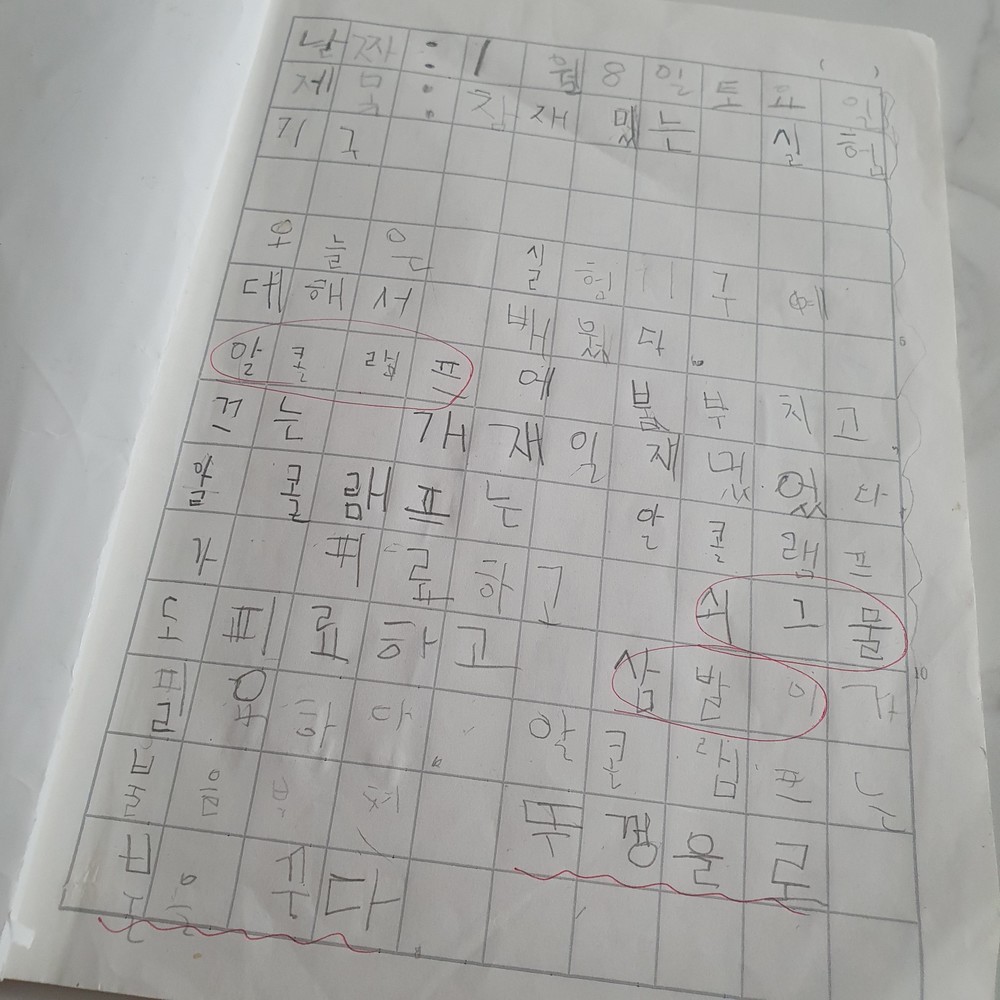 날짜 : 1 월 8 일 토 요 일
제목 : 참 재 밌는 실험
기구
오늘은 실험기구에
대해서 배웠다.
알콜램프에 붊부치고
끄는 개 재일 재밌었다
알콜램프는 알콜램프
가 피료하고 쇠그물
도 피료하고 삼발이가
필요하다. 알콘램프는
불을 뚜껑울로
부은 준다